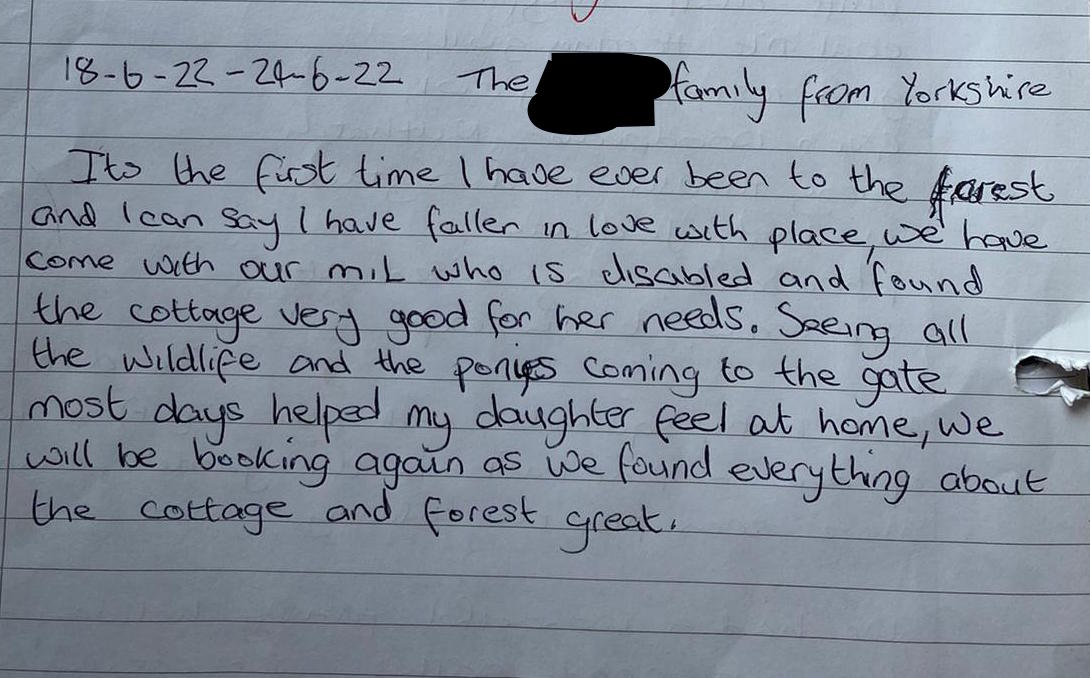 18-6-22 - 24-6-22 The family from Yorkshire
Its the first time I have ever been to the forest
and I can say I have fallen in love with place, we have
come with our mil who is disabled and found
the cottage very good for her needs. Seeing all
the wildlife and the ponies coming to the gate
most days helped my daughter feel at home, we
will be booking again as we found everything about
the cottage and forest great.